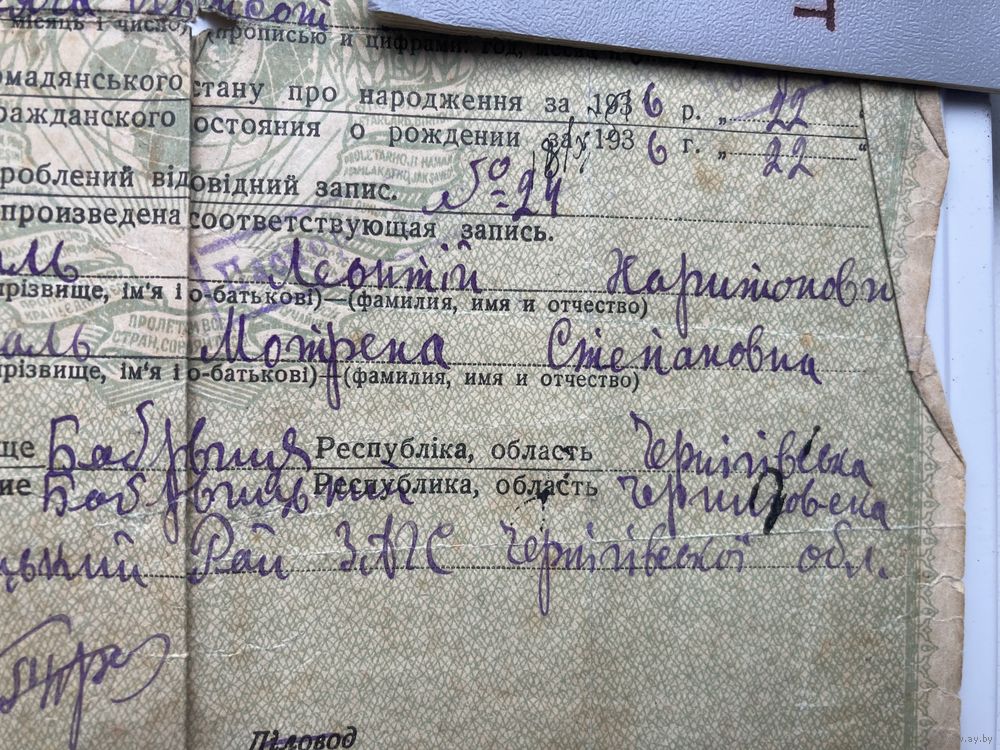 місяць і число, прописью и цифрами: год,
омадянського стану про народження за 1936 р. „ 22 “
ражданского остояния о рождении за 1936 г. „ 22 “
роблений відповідний запис. № 24
произведена соответствующая запись.
аль Леонтій Харитонови
прізвище, ім'я і о-батькові)—(фамилия, имя и отчество)
аль Мотрена Степановна
прізвище, ім'я і о-батькові)—(фамилия, имя и отчество)
ще Бобрвиця Республіка, область Чернігівська
ие Республика, область
цький Рай ЗАГС Чернігівської обл.
Діловод